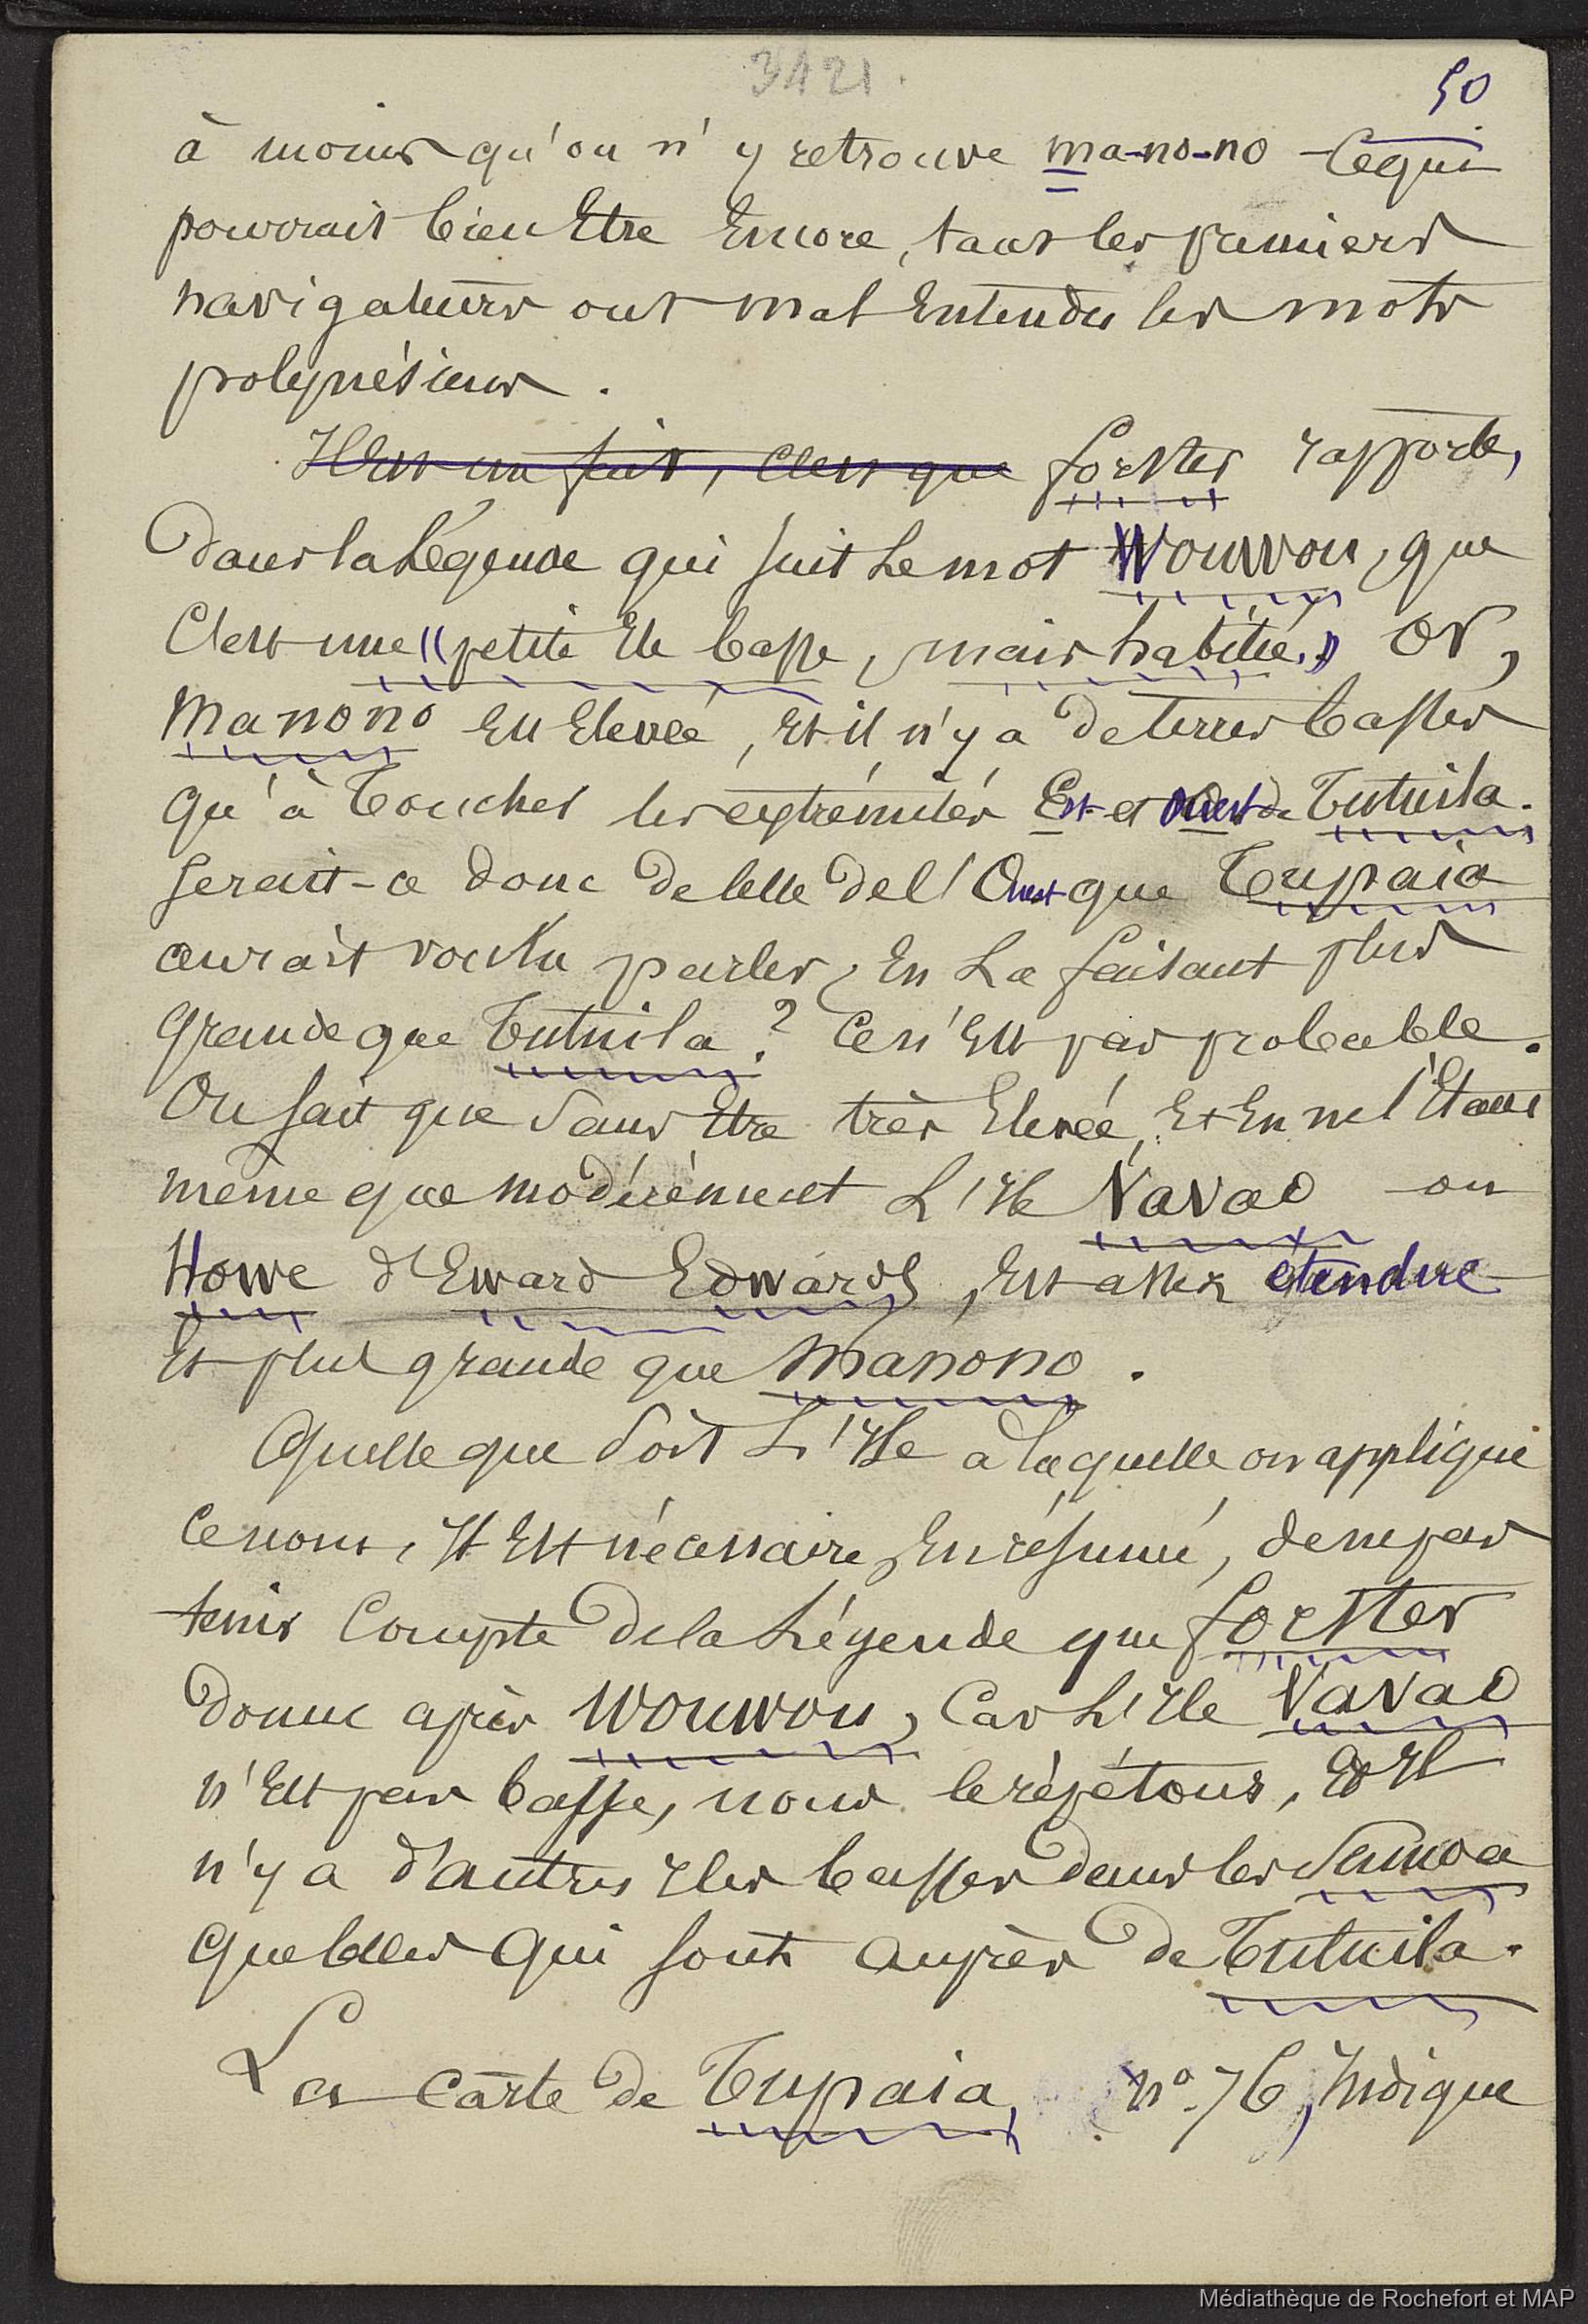 3421.
50
à moins qu'on n'y retrouve ma-no-no Ce qui
pourrait bien être encore, tant les premiers
navigateurs ont mal entendu les mots
polynésiens.
Il est un fait, c'est que forster rapporte,
dans la légende qui suit le mot Wouwou, que
c'est une "petite île basse, mais habitée." Or,
Manono est élevée, et il n'y a de terres basses
qu'à toucher les extrémités Est et Ouest de Tutuila.
Serait-ce donc de celle de l'Ouest que Tupaia
aurait voulu parler, en la faisant plus
grande que Tutuila? Ce n'est pas probable.
On sait que sans être très élevée, et en ne l'étant
même que modérément l'île Vavao ou
Howe d'Eward Edwards, est assez étendue
et plus grande que Manono.
Quelle que soit l'île à laquelle on applique
ce nom, il est nécessaire, en résumé, de ne pas
tenir compte de la légende que forster
donne après Wouwou, car l'île Vavao
n'est pas basse, nous le répétons, et il
n'y a d'autres îles basses dans les Samoa
que celles qui sont auprès de Tutuila.
La carte de Tupaia, n° 76, indique
Médiathèque de Rochefort et MAP